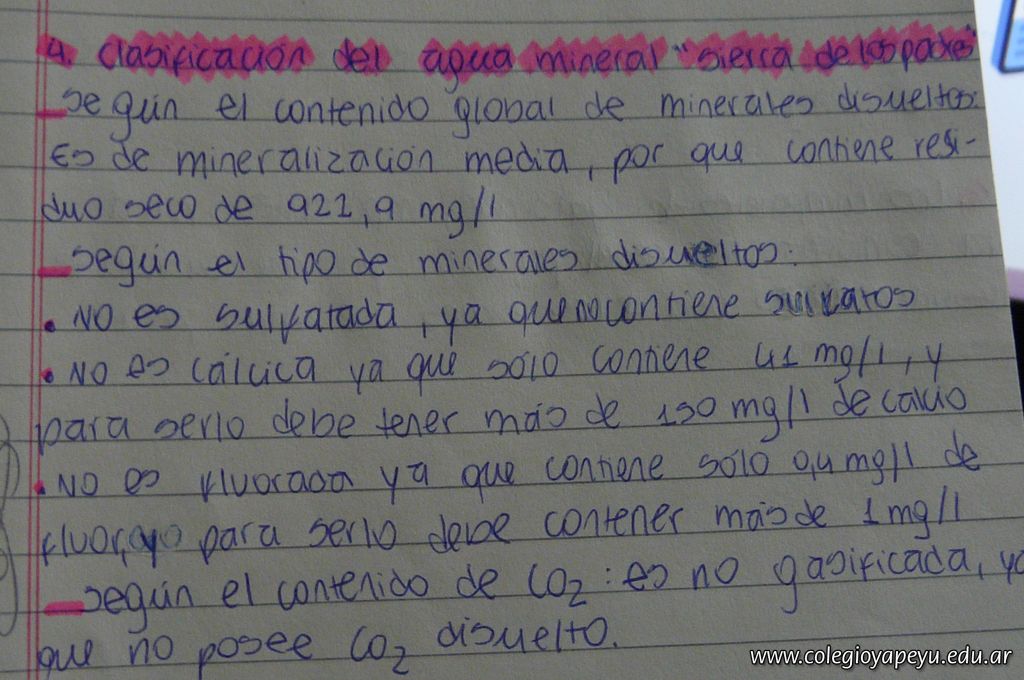 4. Clasificación del agua mineral "sierra de los padres"
_según el contenido global de minerales disueltos:
Es de mineralización media, por que contiene resi-
duo seco de 922,9 mg/l
_según el tipo de minerales disueltos:
• NO es sulfatada, ya que no contiene sulfatos
• NO es cálcica ya que sólo contiene 41 mg/l, y
para serlo debe tener más de 150 mg/l de calcio
• NO es fluorada ya que contiene sólo 0,4 mg/l de
fluor, y para serlo debe contener más de 1 mg/l
_según el contenido de CO2: es no gasificada, ya
que no posee CO2 disuelto.
www.colegioyapeyu.edu.ar